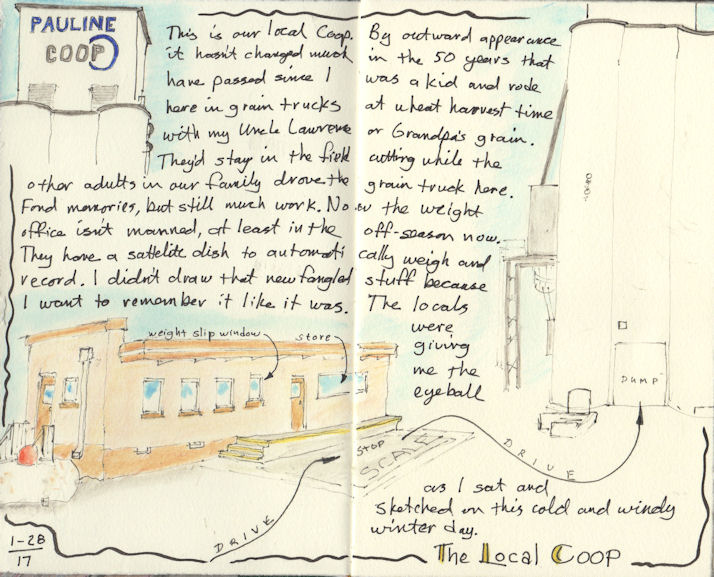 PAULINE
COOP
This is our local Coop. By outward appearance
it hasn't changed much in the 50 years that
have passed since I was a kid and rode
here in grain trucks at wheat harvest time
with my Uncle Lawrence or Grandpa's grain.
They'd stay in the field cutting while the
other adults in our family drove the grain truck here.
Fond memories, but still much work. Now the weight
office isn't manned, at least in the off-season now.
They have a sattelite dish to automatically weigh and
record. I didn't draw that newfangled stuff because
I want to remember it like it was. The locals
were
giving
me the
eyeball
weight slip window
store
DUMP
STOP
SCALE
DRIVE
DRIVE
as I sat and
sketched on this cold and windy
winter day.
1-28
17
The Local Coop